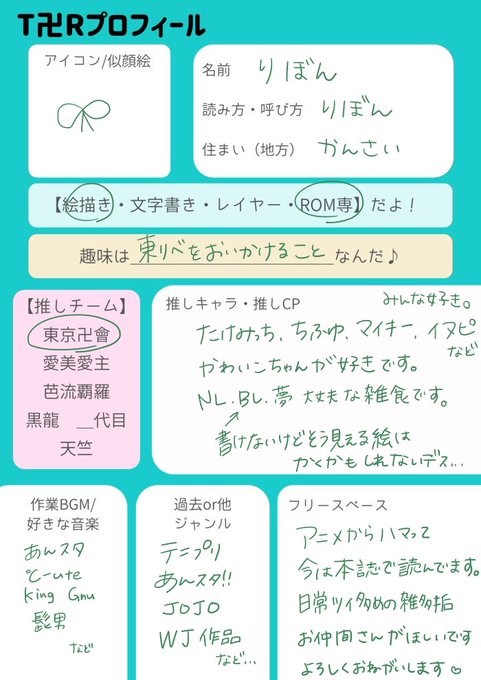 T卍Rプロフィール
アイコン/似顔絵
名前 りぼん
読み方・呼び方 りぼん
住まい（地方） かんさい
【絵描き・文字書き・レイヤー・ROM専】だよ！
趣味は東リベをおいかけることなんだ♪
【推しチーム】
東京卍會
愛美愛主
芭流覇羅
黒龍 __代目
天竺
推しキャラ・推しCP
みんな好き。
たけみっち、ちふゆ、マイキー、イヌピ
など
かわいこちゃんが好きです。
NL、BL、夢 大丈夫な雑食です。
書けないけどそう見える絵は
かくかもしれないデス...
作業BGM/
好きな音楽
あんスタ
℃-ute
King Gnu
髭男
など
過去or他
ジャンル
テニプリ
あんスタ!!
JOJO
WJ作品
など...
フリースペース
アニメからハマって
今は本誌で読んでます。
日常ツイ多めの雑多垢
お仲間さんがほしいです
よろしくおねがいします♡